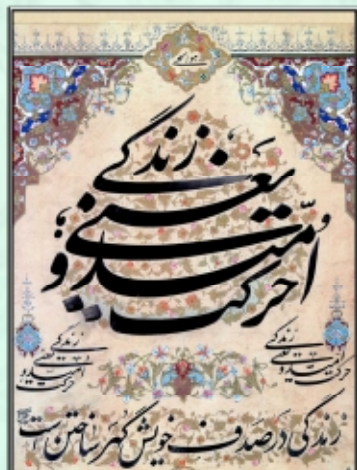 هوالحق
زندگی
یعنی
امید و
حرکت
زندگی
یعنی
امید و
حرکت
زندگی
یعنی
امید و
حرکت
زندگی در صدف خویش گهر ساختن است